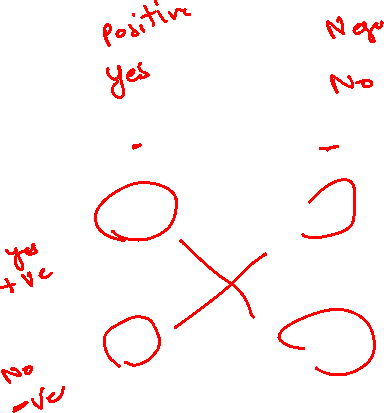 Positive
Yes
Nega
No
-
-
yes
+ve
No
-ve